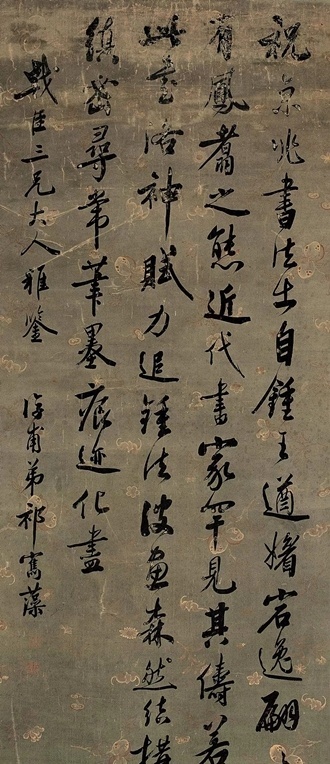 祝京兆書法出自鍾王遒媚宕逸翩
有鳳翥之態近代書家罕見其儔若
此卷洛神賦力追鍾法波畫森然結構
縝密尋常筆墨痕迹化盡
戟臣三兄大人雅鑒
淳甫弟祁寯藻